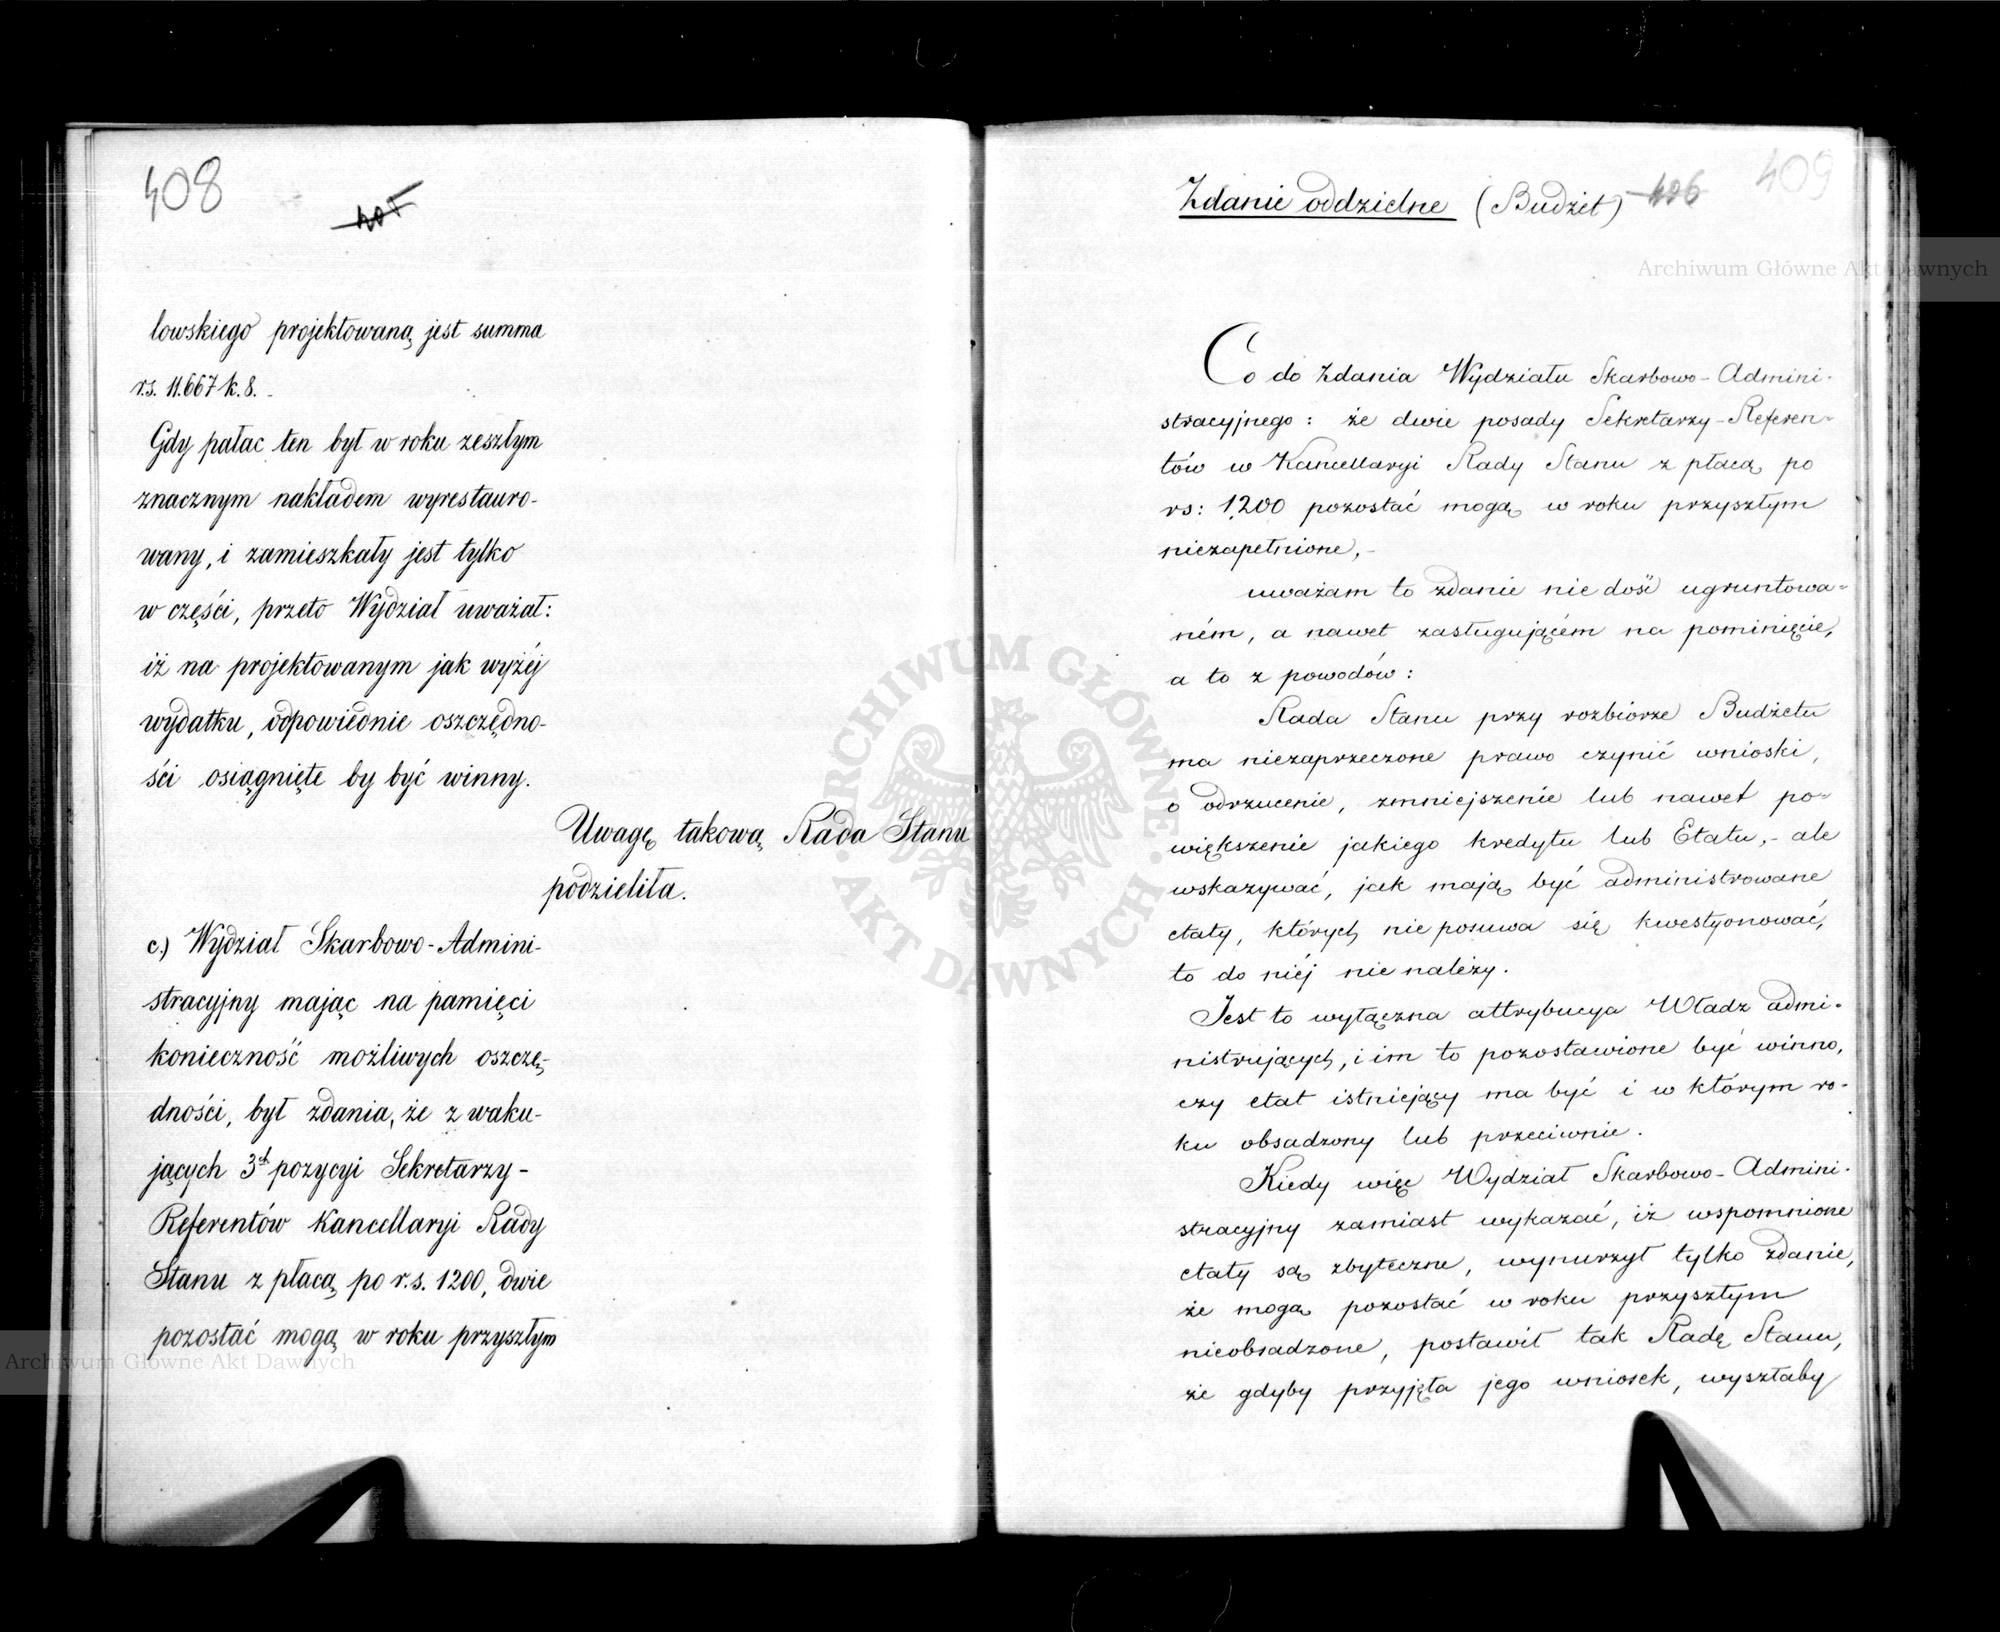 408
405
lowskiego projektowaną jest summa
r.s. 11.667 k. 8. -
Gdy pałac ten był w roku zeszłym
znacznym nakładem wyrestauro-
wany, i zamieszkały jest tylko
w części, przeto Wydział uważał:
iż na projektowanym jak wyżéj
wydatku, odpowiednie oszczędno-
ści osiągnięte by być winny.
Uwagę takową Rada Stanu
podzieliła.
c.) Wydział Skarbowo-Admini-
stracyjny mając na pamięci
konieczność możliwych oszczę-
dności, był zdania, że z waku-
jących 3ch pozycyi Sekretarzy-
Referentów Kancellaryi Rady
Stanu z płacą po r.s. 1200, dwie
pozostać mogą w roku przyszłym
Zdanie oddzielne (Budżet)
406
409
Co do Zdania Wydziału Skarbowo-Admini-
stracyjnego: że dwie posady Sekretarzy-Referen-
tów w Kancellaryi Rady Stanu z płacą po
rs: 1,200 pozostać mogą w roku przyszłym
niezapełnione,-
uważam to zdanie nie dość ugruntowa-
ném, a nawet zasługującém na pominięcie,
a to z powodów:
Rada Stanu przy rozbiorze Budżetu
ma niezaprzeczone prawo czynić wnioski,
o odrzucenie, zmniejszenie lub nawet po-
większenie jakiego kredytu lub Etatu,- ale
wskazywać, jak mają być administrowane
etaty, których nie posuwa się kwestyonować,
to do niéj nie należy.
Jest to wyłączna attrybucya Władz admi-
nistrujących, i im to pozostawione być winno,
czy etat istniejący ma być i w którym ro-
ku obsadzony lub przeciwnie.
Kiedy więc Wydział Skarbowo-Admini-
stracyjny zamiast wykazać, iż wspomnione
etaty są zbyteczne, wynurzył tylko zdanie,
że mogą pozostać w roku przyszłym
nieobsadzone, postawił tak Radę Stanu,
że gdyby przyjęła jego wniosek, wyszłaby
Archiwum Główne Akt Dawnych
ARCHIWUM GŁÓWNE
AKT DAWNYCH
Archiwum Główne Akt Dawnych